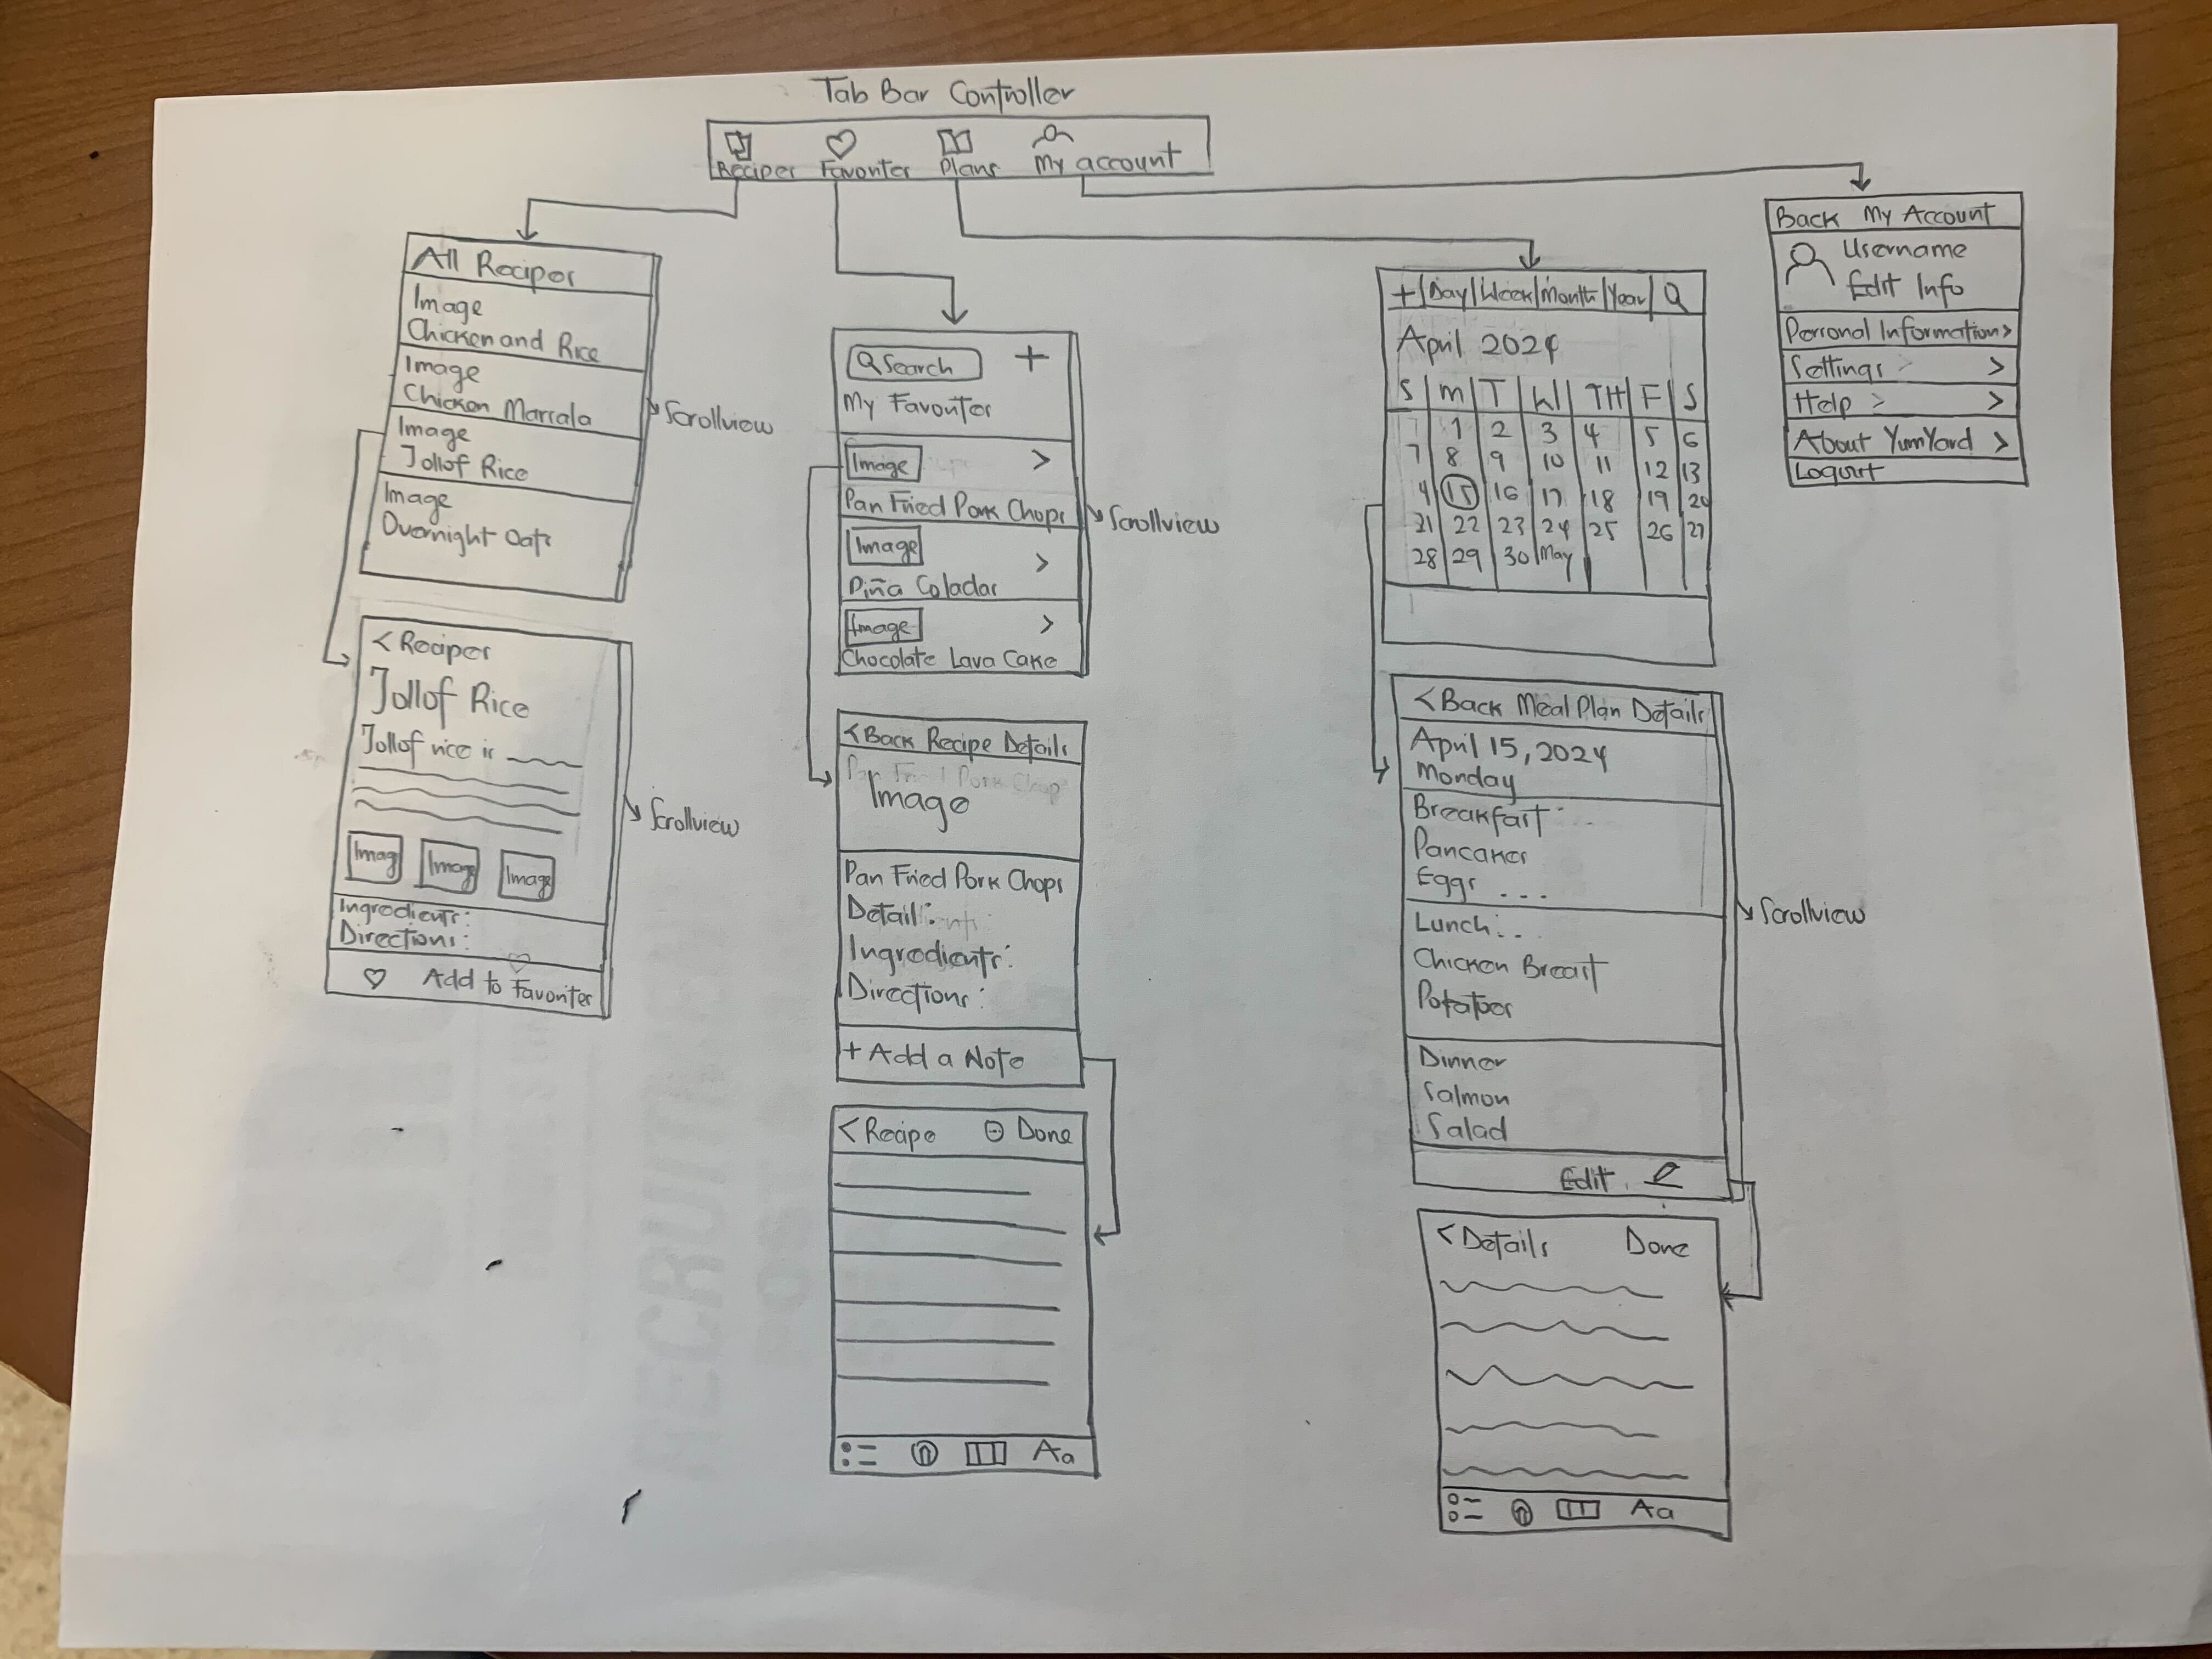 Tab Bar Controller
Recipes Favorites Plans My account
All Recipes
Image
Chicken and Rice
Image
Chicken Marsala
Image
Jollof Rice
Image
Overnight Oats
Scrollview
< Recipes
Jollof Rice
Jollof rice is
Image Image Image
Ingredients:
Directions:
Add to Favorites
Scrollview
Search +
My Favorites
Image >
Pan Fried Pork Chops
Image >
Piña Coladas
Image >
Chocolate Lava Cake
Scrollview
< Back Recipe Details
Pan Fried Pork Chop
Image
Pan Fried Pork Chops
Detail:
Ingredients:
Directions:
+ Add a Note
< Recipe Done
Aa
+ | Day | Week | Month | Year |
April 2024
S M T W TH F S
1 2 3 4 5 6
7 8 9 10 11 12 13
4 15 16 17 18 19 20
21 22 23 24 25 26 27
28 29 30 May
< Back Meal Plan Details
April 15, 2024
Monday
Breakfast:
Pancakes
Eggs ...
Lunch:..
Chicken Breast
Potatoes
Dinner
Salmon
Salad
Edit
Scrollview
< Details Done
Aa
Back My Account
Username
Edit Info
Personal Information >
Settings >
Help > >
About YumYard >
Logout